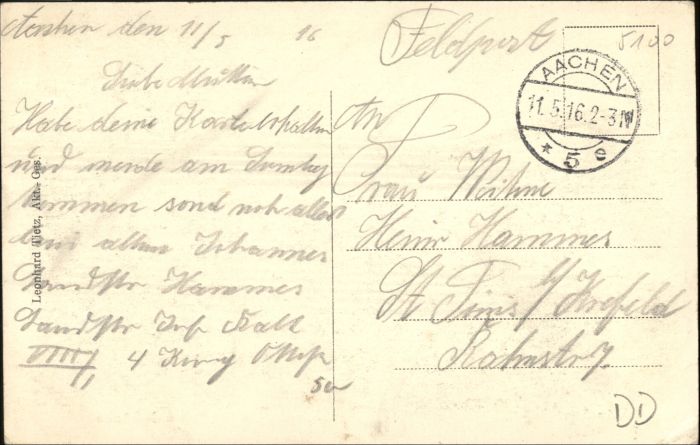 Aachen den 11/5 16
Liebe Mutter
Habe deine Karte erhalten
und werde am Sonntag
kommen sonst noch alles
beim alten Johannes
Landstr Hammes
Landstr Inf Batl
4 Komp
An
Feldpost
5100
AACHEN
11.5.16.2-3N
* 5 e
Frau Witwe
Heinr Hammes
St Tönis b/ Krefeld
Leonhard Tietz, Akt.-Ges.
DD